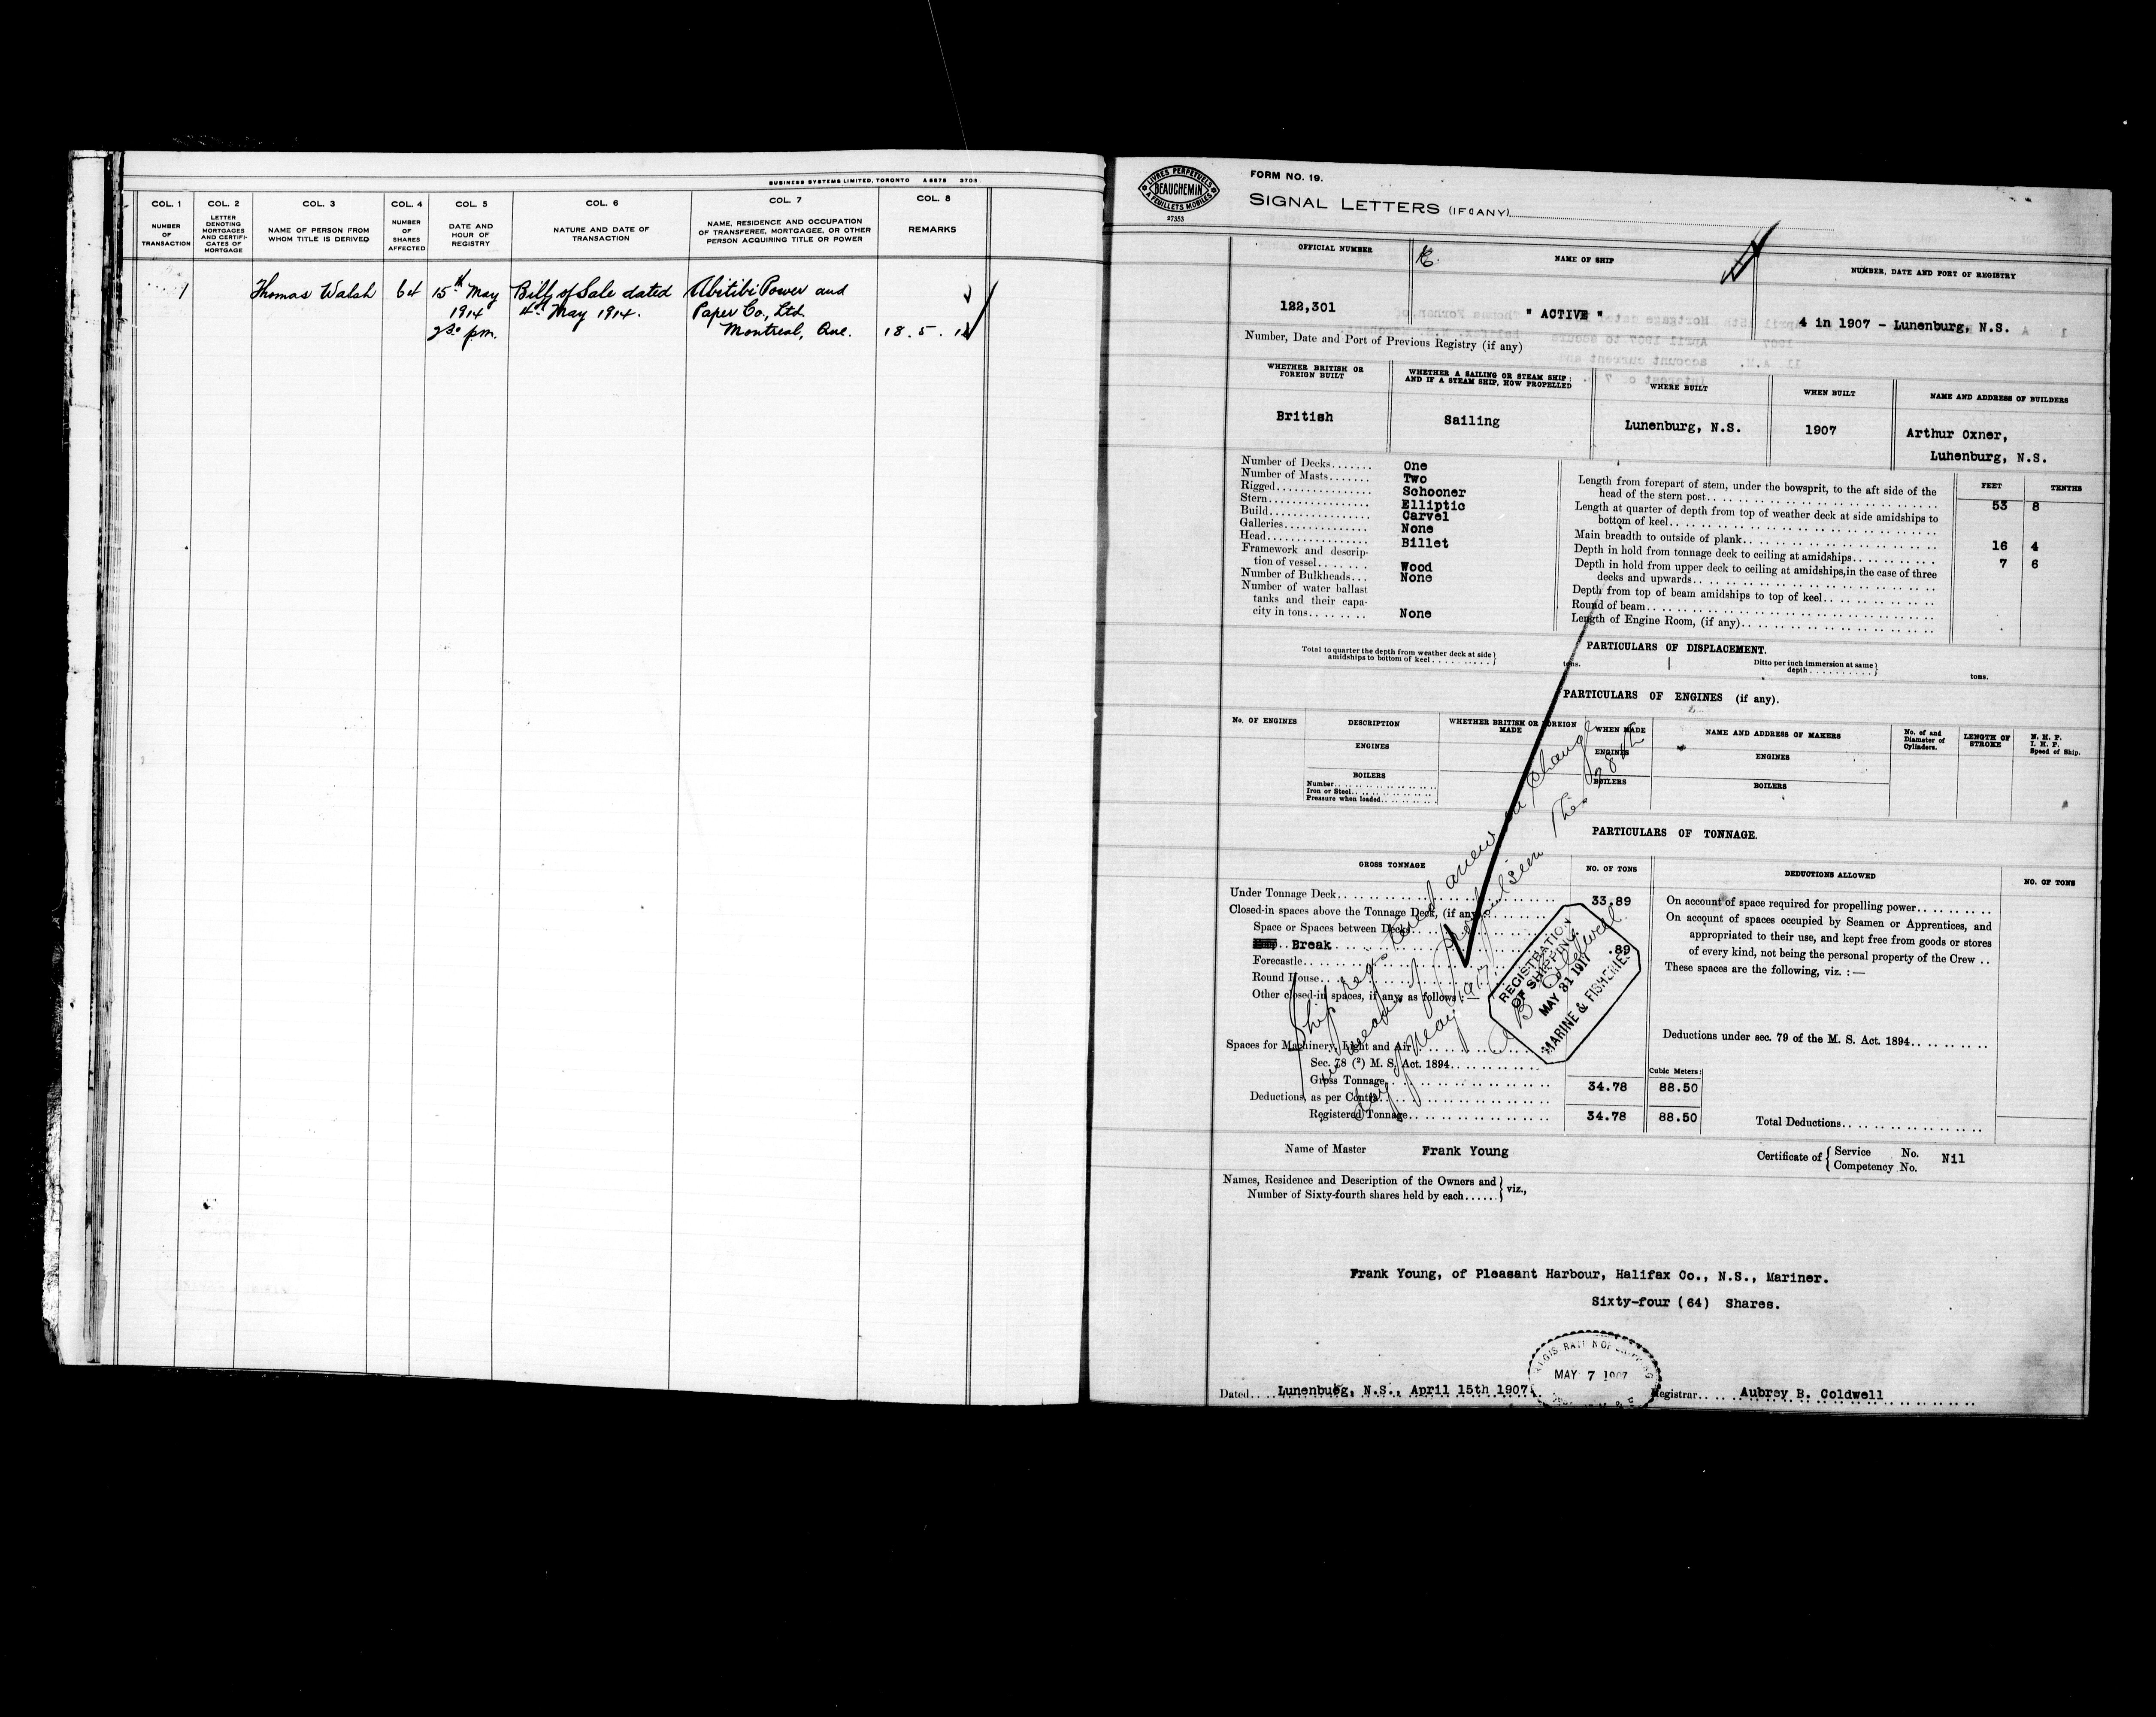 BUSINESS SYSTEMS LIMITED, TORONTO A 6678 3708
COL. 1 COL. 2 COL. 3 COL. 4 COL. 5 COL. 6 COL. 7 COL. 8
NUMBER OF TRANSACTION
LETTER DENOTING MORTGAGES AND CERTIFI-CATES OF MORTGAGE
NAME OF PERSON FROM WHOM TITLE IS DERIVED
NUMBER OF SHARES AFFECTED
DATE AND HOUR OF REGISTRY
NATURE AND DATE OF TRANSACTION
NAME, RESIDENCE AND OCCUPATION OF TRANSFEREE, MORTGAGEE, OR OTHER PERSON ACQUIRING TITLE OR POWER
REMARKS
1 Thomas Walsh 64 15th May Bill of Sale dated Abitibi Power and
1914 4th May 1914. Paper Co., Ltd.
2 30 p.m. Montreal, Que. 18. 5. 14
LIVRES PERPETUELS
BEAUCHEMIN
A FEUILLETS MOBILES
27353
FORM NO. 19.
SIGNAL LETTERS (IF ANY)
OFFICIAL NUMBER NAME OF SHIP NUMBER, DATE AND PORT OF REGISTRY
122,301 " ACTIVE " 4 in 1907 - Lunenburg, N.S.
Number, Date and Port of Previous Registry (if any)
WHETHER BRITISH OR FOREIGN BUILT
WHETHER A SAILING OR STEAM SHIP; AND IF A STEAM SHIP, HOW PROPELLED
WHERE BUILT
WHEN BUILT
NAME AND ADDRESS OF BUILDERS
British Sailing Lunenburg, N.S. 1907 Arthur Oxner,
Lunenburg, N.S.
Number of Decks....... One
Number of Masts....... Two
Rigged................ Schooner
Stern................. Elliptic
Build................. Carvel
Galleries............. None
Head.................. Billet
Framework and descrip-
tion of vessel....... Wood
Number of Bulkheads... None
Number of water ballast
tanks and their capa-
city in tons........ None
FEET TENTHS
Length from forepart of stem, under the bowsprit, to the aft side of the
head of the stern post.. 53 8
Length at quarter of depth from top of weather deck at side amidships to
bottom of keel..
Main breadth to outside of plank.. 16 4
Depth in hold from tonnage deck to ceiling at amidships.. 7 6
Depth in hold from upper deck to ceiling at amidships, in the case of three
decks and upwards..
Depth from top of beam amidships to top of keel..
Round of beam..
Length of Engine Room, (if any)..
PARTICULARS OF DISPLACEMENT.
Total to quarter the depth from weather deck at side
amidships to bottom of keel.......... tons.
Ditto per inch immersion at same
depth.......... tons.
PARTICULARS OF ENGINES (if any).
No. OF ENGINES
DESCRIPTION
WHETHER BRITISH OR FOREIGN MADE
WHEN MADE
NAME AND ADDRESS OF MAKERS
No. of and Diameter of Cylinders.
LENGTH OF STROKE
N. H. P.
I. H. P.
Speed of Ship.
ENGINES ENGINES ENGINES
BOILERS BOILERS BOILERS
Number..
Iron or Steel..
Pressure when loaded..
PARTICULARS OF TONNAGE.
GROSS TONNAGE NO. OF TONS DEDUCTIONS ALLOWED NO. OF TONS
Under Tonnage Deck.. 33.89
Closed-in spaces above the Tonnage Deck, (if any)
Space or Spaces between Decks..
Break .89
Forecastle..
Round House..
Other closed-in spaces, if any, as follows:
Spaces for Machinery, Light and Air..
Sec. 78 (2) M. S. Act. 1894..
Cubic Meters:
Gross Tonnage.. 34.78 88.50
Deductions, as per Contra..
Registered Tonnage.. 34.78 88.50
On account of space required for propelling power..
On account of spaces occupied by Seamen or Apprentices, and
appropriated to their use, and kept free from goods or stores
of every kind, not being the personal property of the Crew ..
These spaces are the following, viz. :—
Deductions under sec. 79 of the M. S. Act. 1894..
Total Deductions..
Ship registered anew on change
in means of propulsion this 28th
day of May 1917
A B Coldwell
REGISTRATION
OF SHIPPING
MAY 31 1917
MARINE & FISHERIES
Name of Master Frank Young
Certificate of Service No. Competency No. Nil
Names, Residence and Description of the Owners and
Number of Sixty-fourth shares held by each...... viz.,
Frank Young, of Pleasant Harbour, Halifax Co., N.S., Mariner.
Sixty-four (64) Shares.
MAY 7 1907
Dated.. Lunenburg, N.S., April 15th 1907. Registrar.... Aubrey B. Coldwell